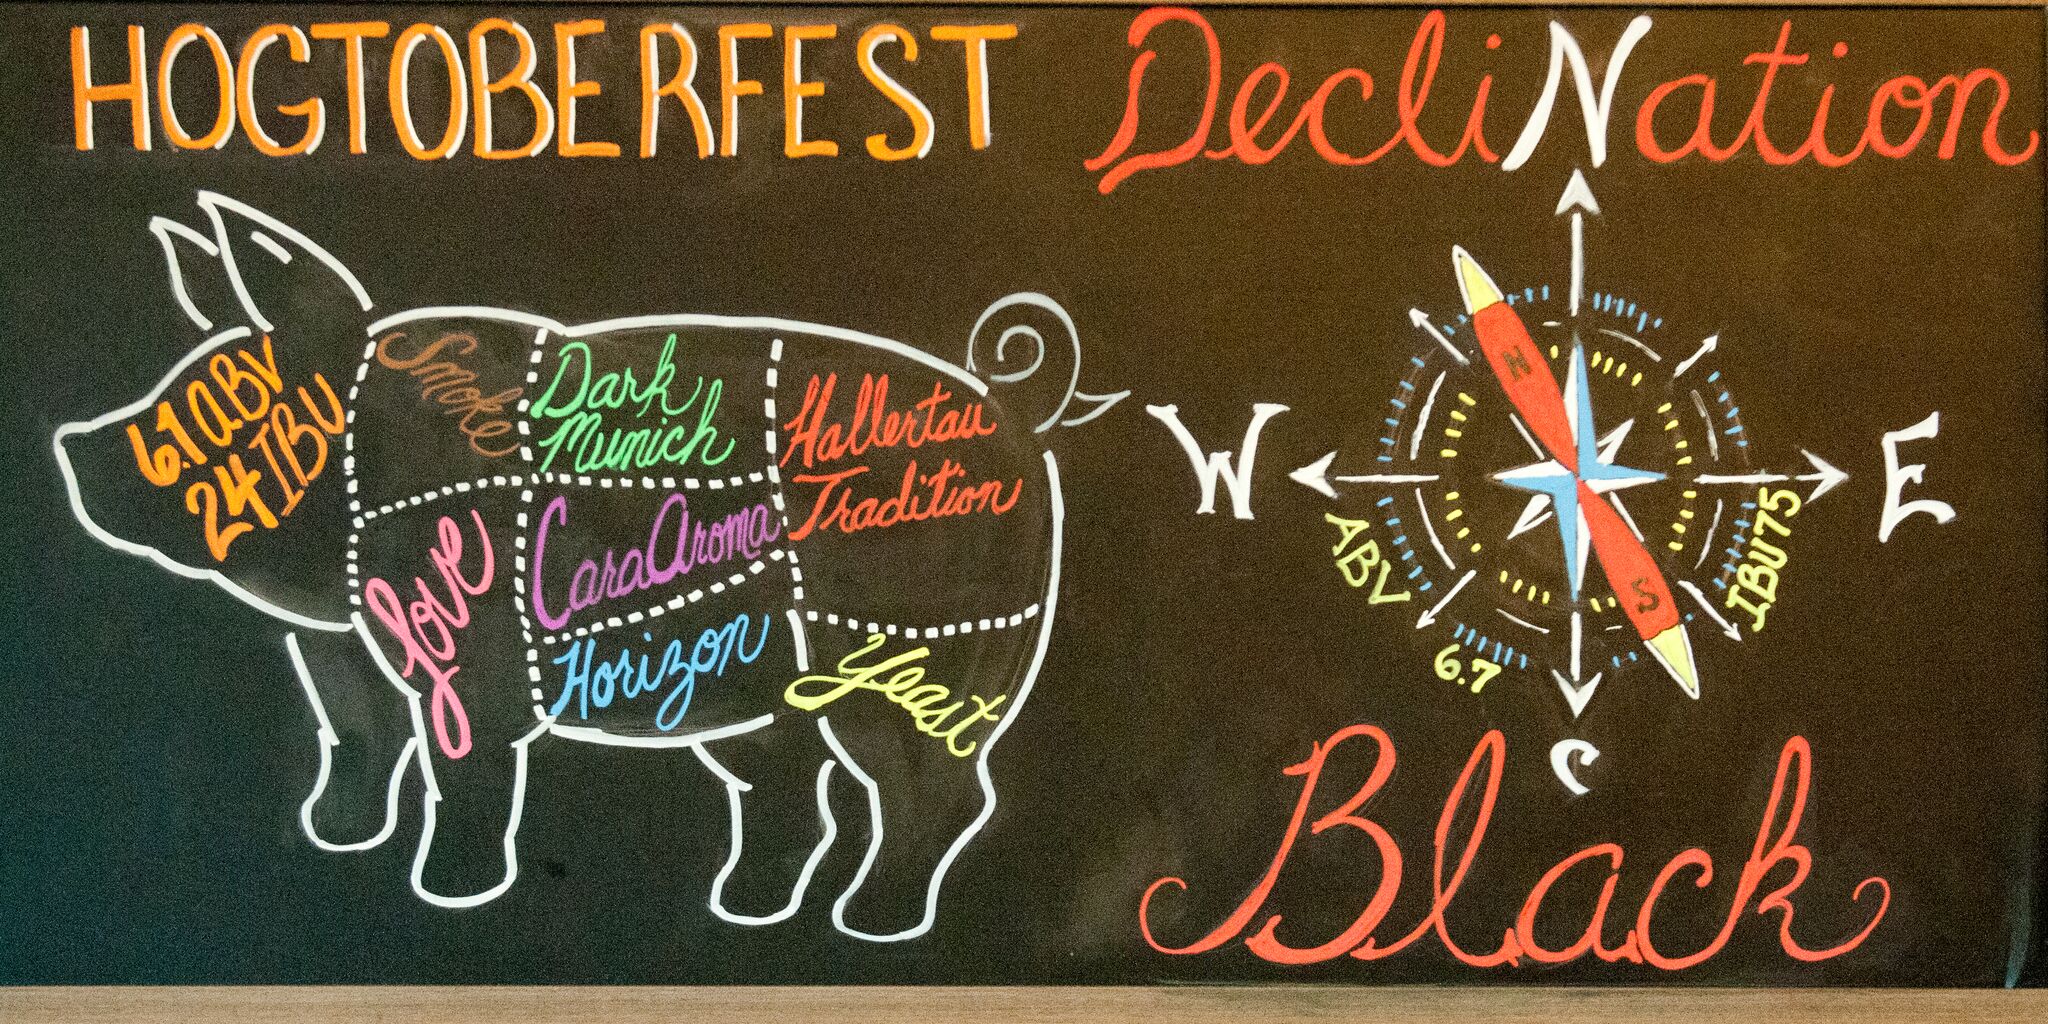 HOGTOBERFEST
6.1 ABV
24 IBU
Smoke
Dark
Munich
Hallertau
Tradition
love
CaraAroma
Horizon
Yeast
DecliNation
N
W
E
S
ABV
6.7
IBU 75
Black